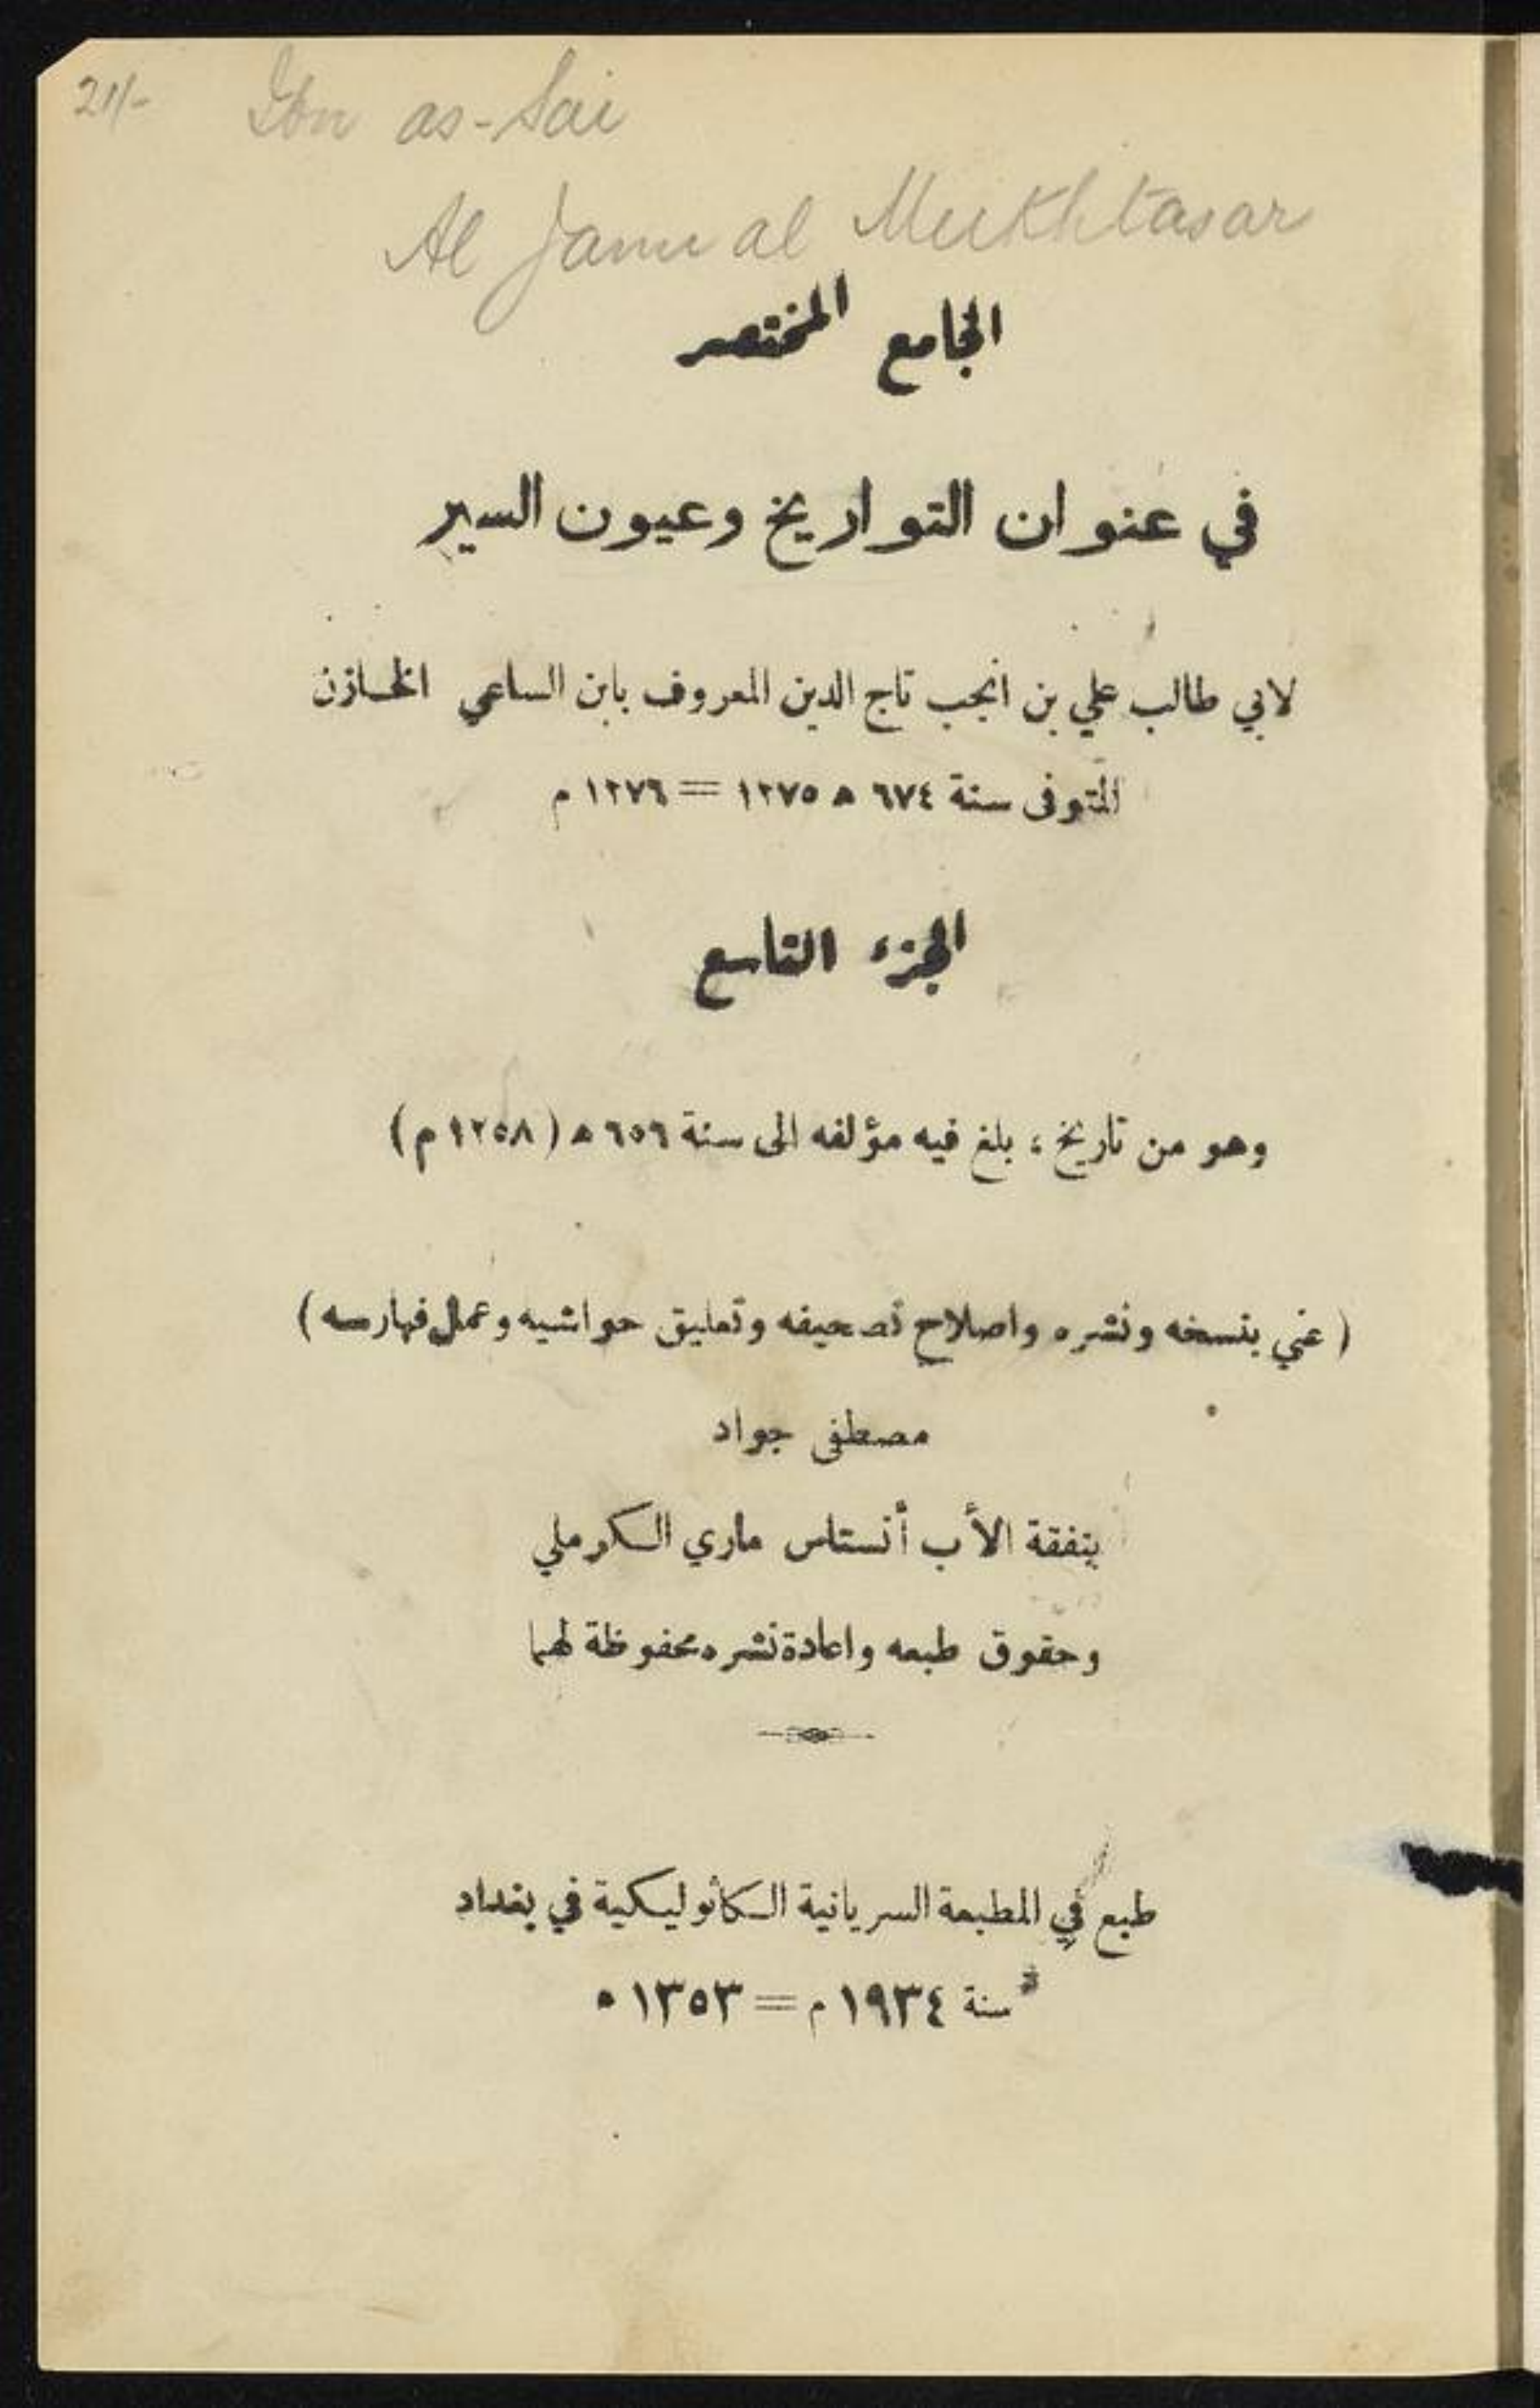 21/-
Ibn as-Sai
Al Jami al Mukhtasar
الجامع المختصر
في عنوان التواريخ وعيون السير
لابي طالب علي بن انجب تاج الدين المعروف بابن الساعي الخازن
المتوفى سنة ٦٧٤ ه ١٢٧٥ = ١٢٧٦ م
الجزء التاسع
وهو من تاريخ ؛ بلغ فيه مؤلفه الى سنة ٦٥٦ ه ( ١٢٥٨ م )
( عني بنسخه ونشره واصلاح تصحيفه وتعليق حواشيه وعمل فهارسه )
مصطفى جواد
بنفقة الأب أنستاس ماري الكرملي
وحقوق طبعه واعادة نشره محفوظة لهما
طبع في المطبعة السريانية الكاثوليكية في بغداد
سنة ١٩٣٤ م = ١٣٥٣ ه